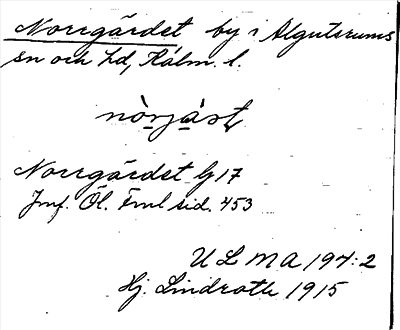 Norrgärdet by i Algutsrums
sn och hd, Kalm. l.
Norrgärdet G 17
Jmf. Öl. Fml sid. 453
U L M A 197:2
Hj. Lindroth 1915